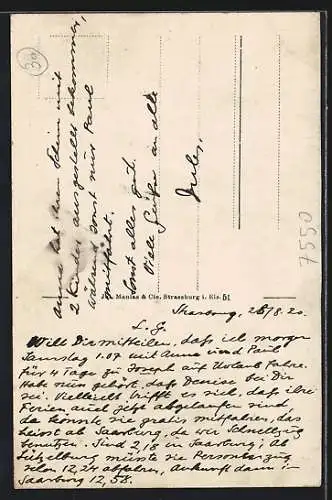 Strasbourg, 28/8. 20.
L. G.
Will Dir mitteilen, dass ich morgen
Samstag 1.07 mit Anna und Paul
für 4 Tage zu Joseph auf Urlaub fahre.
Habe nun gehört, dass Denise bei Dir
sei. Vielleicht trifft es sich, dass ihre
Ferien auch jetzt abgelaufen sind
da könnte sie gratis mitfahren, das
heisst ab Saarburg, da wir Schnellzug
benutzen. Sind 2,18 in Saarburg; Ab
Lützelburg müsste sie Personenzug
12,24 abfahren, Ankunft dann in
Saarburg 12,58.
Anna hat den Schein mit
2 Kinder ausgestellt bekommen,
während sonst nur Paul
mitfährt.
Sonst alles gut.
Viele Grüße an alle
Jules.
J. Manias & Cie. Strassburg i. Els. 51
39
7550